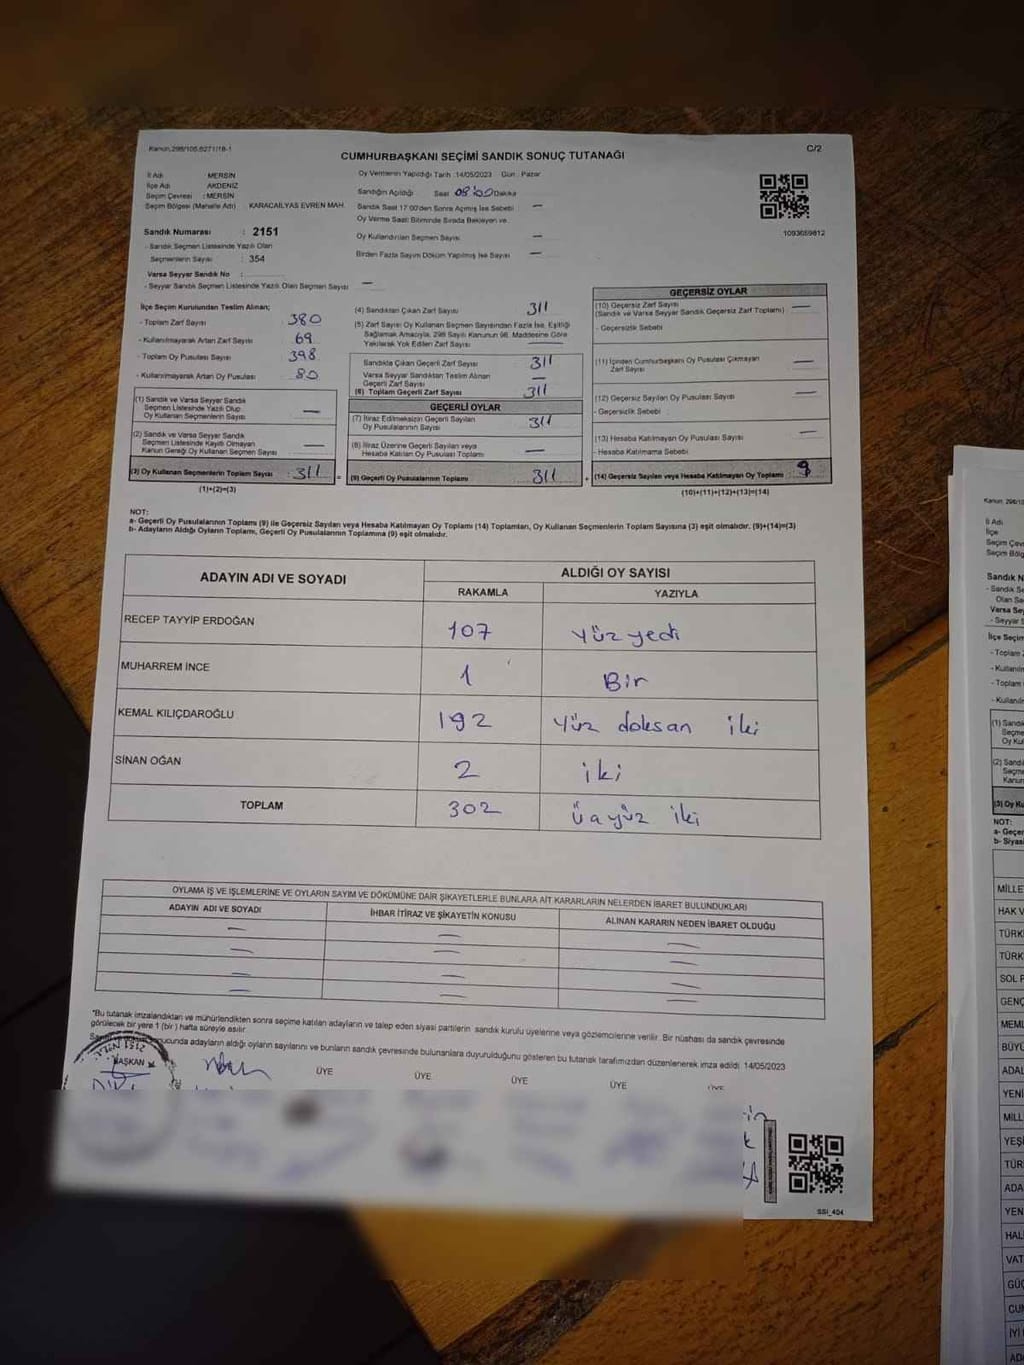 Kanun:298/105,6271/18-1
C/2
CUMHURBAŞKANI SEÇİMİ SANDIK SONUÇ TUTANAĞI
İl Adı : MERSİN
İlçe Adı : AKDENİZ
Seçim Çevresi : MERSİN
Seçim Bölgesi (Mahalle Adı) : KARACAİLYAS EVREN MAH.
Sandık Numarası : 2151
- Sandık Seçmen Listesinde Yazılı Olan
Seçmenlerin Sayısı : 354
Varsa Seyyar Sandık No :
- Seyyar Sandık Seçmen Listesinde Yazılı Olan Seçmen Sayısı : —
Oy Vermenin Yapıldığı Tarih : 14/05/2023 Gün : Pazar
Sandığın Açıldığı Saat 08:00 Dakika
Sandık Saat 17:00'den Sonra Açılmış İse Sebebi : —
Oy Verme Saati Bitiminde Sırada Bekleyen ve
Oy Kullandırılan Seçmen Sayısı —
Birden Fazla Sayım Döküm Yapılmış İse Sayısı : —
1093659812
İlçe Seçim Kurulundan Teslim Alınan;
- Toplam Zarf Sayısı : 380
- Kullanılmayarak Artan Zarf Sayısı : 69
- Toplam Oy Pusulası Sayısı : 398
- Kullanılmayarak Artan Oy Pusulası : 80
(1) Sandık ve Varsa Seyyar Sandık
Seçmen Listesinde Yazılı Olup
Oy Kullanan Seçmenlerin Sayısı : —
(2) Sandık ve Varsa Seyyar Sandık
Seçmen Listesinde Kayıtlı Olmayan
Kanun Gereği Oy Kullanan Seçmen Sayısı : —
(3) Oy Kullanan Seçmenlerin Toplam Sayısı : 311
(1)+(2)=(3)
(4) Sandıktan Çıkan Zarf Sayısı : 311
(5) Zarf Sayısı Oy Kullanan Seçmen Sayısından Fazla İse, Eşitliği
Sağlamak Amacıyla, 298 Sayılı Kanunun 98. Maddesine Göre
Yakılarak Yok Edilen Zarf Sayısı :
Sandıkta Çıkan Geçerli Zarf Sayısı : 311
Varsa Seyyar Sandıktan Teslim Alınan
Geçerli Zarf Sayısı : —
(6) Toplam Geçerli Zarf Sayısı : 311
GEÇERLİ OYLAR
(7) İtiraz Edilmeksizin Geçerli Sayılan
Oy Pusulalarının Sayısı : 311
(8) İtiraz Üzerine Geçerli Sayılan veya
Hesaba Katılan Oy Pusulası Toplamı : —
(9) Geçerli Oy Pusulalarının Toplamı : 311
GEÇERSİZ OYLAR
(10) Geçersiz Zarf Sayısı : —
(Sandık ve Varsa Seyyar Sandık Geçersiz Zarf Toplamı)
- Geçersizlik Sebebi :
(11) İçinden Cumhurbaşkanı Oy Pusulası Çıkmayan
Zarf Sayısı : —
(12) Geçersiz Sayılan Oy Pusulası Sayısı : —
- Geçersizlik Sebebi :
(13) Hesaba Katılmayan Oy Pusulası Sayısı : —
- Hesaba Katılmama Sebebi :
(14) Geçersiz Sayılan veya Hesaba Katılmayan Oy Toplamı : 9
(10)+(11)+(12)+(13)=(14)
NOT:
a- Geçerli Oy Pusulalarının Toplamı (9) ile Geçersiz Sayılan veya Hesaba Katılmayan Oy Toplamı (14) Toplamları, Oy Kullanan Seçmenlerin Toplam Sayısına (3) eşit olmalıdır. (9)+(14)=(3)
b- Adayların Aldığı Oyların Toplamı, Geçerli Oy Pusulalarının Toplamına (9) eşit olmalıdır.
ADAYIN ADI VE SOYADI ALDIĞI OY SAYISI
RAKAMLA YAZIYLA
RECEP TAYYİP ERDOĞAN 107 yüz yedi
MUHARREM İNCE 1 Bir
KEMAL KILIÇDAROĞLU 192 yüz doksan iki
SİNAN OĞAN 2 iki
TOPLAM 302 üçyüz iki
OYLAMA İŞ VE İŞLEMLERİNE VE OYLARIN SAYIM VE DÖKÜMÜNE DAİR ŞİKAYETLERLE BUNLARA AİT KARARLARIN NELERDEN İBARET BULUNDUKLARI
ADAYIN ADI VE SOYADI İHBAR İTİRAZ VE ŞİKAYETİN KONUSU ALINAN KARARIN NEDEN İBARET OLDUĞU
"Bu tutanak imzalandıktan ve mühürlendikten sonra seçime katılan adayların ve talep eden siyasi partilerin sandık kurulu üyelerine veya gözlemcilerine verilir. Bir nüshası da sandık çevresinde
görülecek bir yere 1 (bir) hafta süreyle asılır.
ucunda adayların aldığı oyların sayılarını ve bunların sandık çevresinde bulunanlara duyurulduğunu gösteren bu tutanak tarafımızdan düzenlenerek imza edildi. 14/05/2023
BAŞKAN ÜYE ÜYE ÜYE ÜYE ÜYE
SSİ_404
Kanun: 298/10
İl Adı
İlçe
Seçim Çev
Seçim Bölg
Sandık N
- Sandık Se
Olan Sa
Varsa Sey
- Seyyar S
İlçe Seçim
- Toplam
- Kullanılm
- Toplam
- Kullanılm
(1) Sandı
Seçme
Oy Kul
(2) Sandı
Seçme
Kanun
(3) Oy Ku
NOT:
a- Geçer
b- Siyas
MİLLE
HAK V
TÜRK
TÜRK
SOL P
GENÇ
MEML
BÜYÜ
ADAL
YENİ
MİLL
YEŞİ
TÜR
ADA
YEN
HAL
VAT
GÜÇ
CUM
İYİ
AD